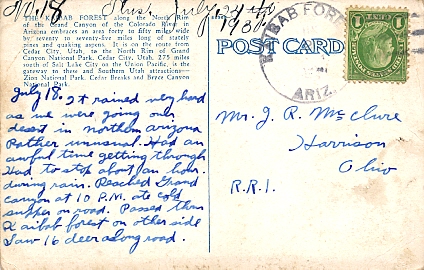 THE KAIBAB FOREST along the North Rim
of the Grand Canyon of the Colorado River in
Arizona embraces an area forty to fifty miles wide
by seventy to seventy-five miles long of stately
pines and quaking aspens. It is on the route from
Cedar City, Utah, to the North Rim of Grand
Canyon National Park. Cedar City, Utah, 275 miles
south of Salt Lake City on the Union Pacific, is the
gateway to these and Southern Utah attractions—
Zion National Park, Cedar Breaks and Bryce Canyon
National Park.
July 18. It rained very hard
as we were going over
desert in northern arizona
Rather unusual. Had an
awful time getting through
Had to stop about an hour
during rain. Reached Grand
canyon at 10 P.M. ate cold
supper on road. Passed thru
Kaibab forest on other side
Saw 16 deer along road.
July 24
1931
POST CARD
KAIBAB FOREST
ARIZ.
1
Mr. J. R. McClure
Harrison
Ohio
R.R.1.